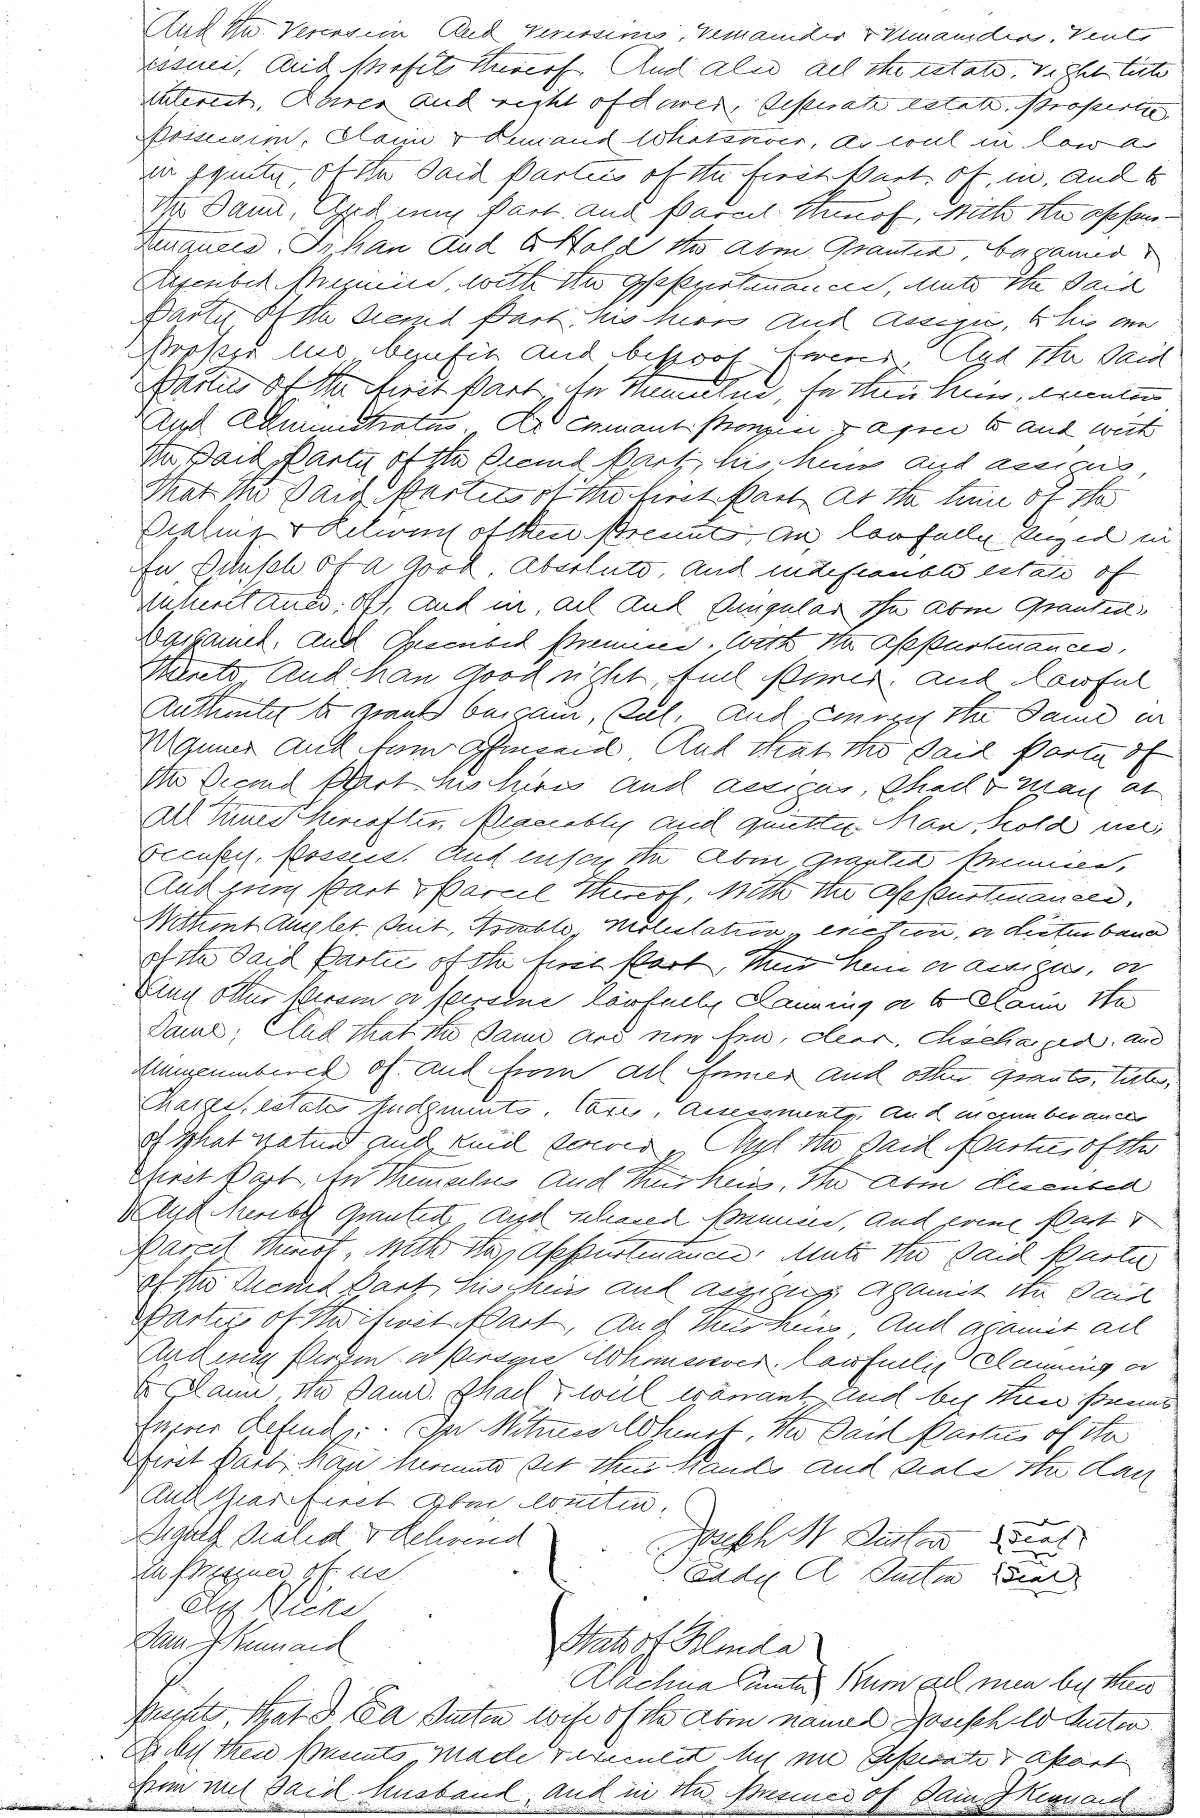 And the reversion And reversions, remainder & remainders, rents
issues, and profits thereof. And also all the estate, right title
interest, dower and right of dower, seperate estate, property
possession, claim & demand whatsoever, as well in law as
in equity, of the said parties of the first part, of, in, and to
the same, And every part and parcel thereof, with the appur-
tenances. To have and to Hold the above granted, bargained &
described premises, with the appurtenances, unto the said
party of the second part, his heirs and assigns, to his own
proper use, benefit and behoof forever. And the said
parties of the first part, for themselves, for their heirs, executors
and administrators, do covenant promise & agree to and with
the said party of the second part, his heirs and assigns,
that the said parties of the first part, at the time of the
sealing & delivery of these presents, are lawfully seized in
fee simple of a good, absolute, and indefeasible estate of
inheritance, of, and in, all and singular the above granted,
bargained, and described premises, with the appurtenances,
thereto, And have good right, full power, and lawful
authority to grant bargain, sell, and convey the same in
manner and form aforesaid. And that the said party of
the second part his heirs and assigns, shall & may at
all times hereafter, peaceably and quietly have, hold use,
occupy, possess, and enjoy the above granted premises,
And every part & parcel thereof, with the appurtenances,
without any let, suit, trouble, molestation, eviction, or disturbance
of the said parties of the first part, their heirs or assigns, or
any other person or persons lawfully claiming or to claim the
same; And that the same are now free, clear, discharged, and
unincumbered of and from all former and other grants, titles,
charges, estates judgments, taxes, assessments, and incumberances
of what nature and kind soever. And the said parties of the
first part, for themselves and their heirs, the above described
And hereby granted and released premises, and every part &
parcel thereof, with the appurtenances, unto the said party
of the second part, his heirs and assigns, against the said
parties of the first part, and their heirs, and against all
And every person or persons whomsoever, lawfully claiming or
to claim the same shall & will warrant and by these presents
forever defend. In Witness Whereof, the said parties of the
first part, have hereunto set their hands and seals the day
and year first above written.
Signed sealed & delivered
in presence of us
Joseph W Suton {Seal}
Eddy A Suton {Seal}
Sam J Kennard
State of Florida
Alachua County Know all men by these
presents, that I Ea Suton wife of the above named Joseph W Suton
do by these presents, made & executed by me seperate & apart
from my said husband, and in the presence of Sam J Kennard